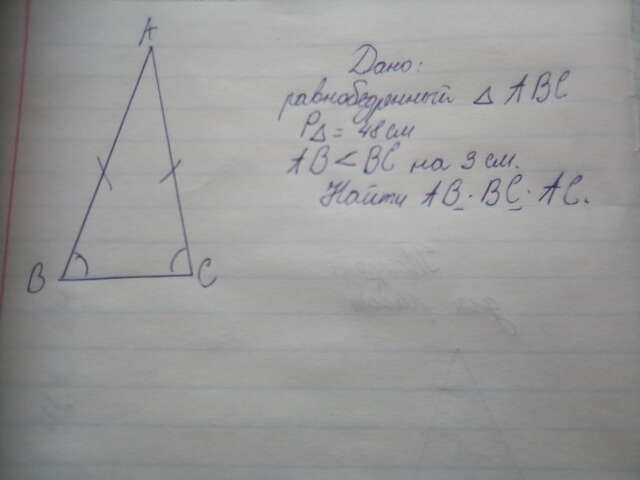 A
B
C
Дано:
равнобедренный △ ABC
P△ = 48 см
AB < BC на 3 см.
Найти AB. BC. AC.